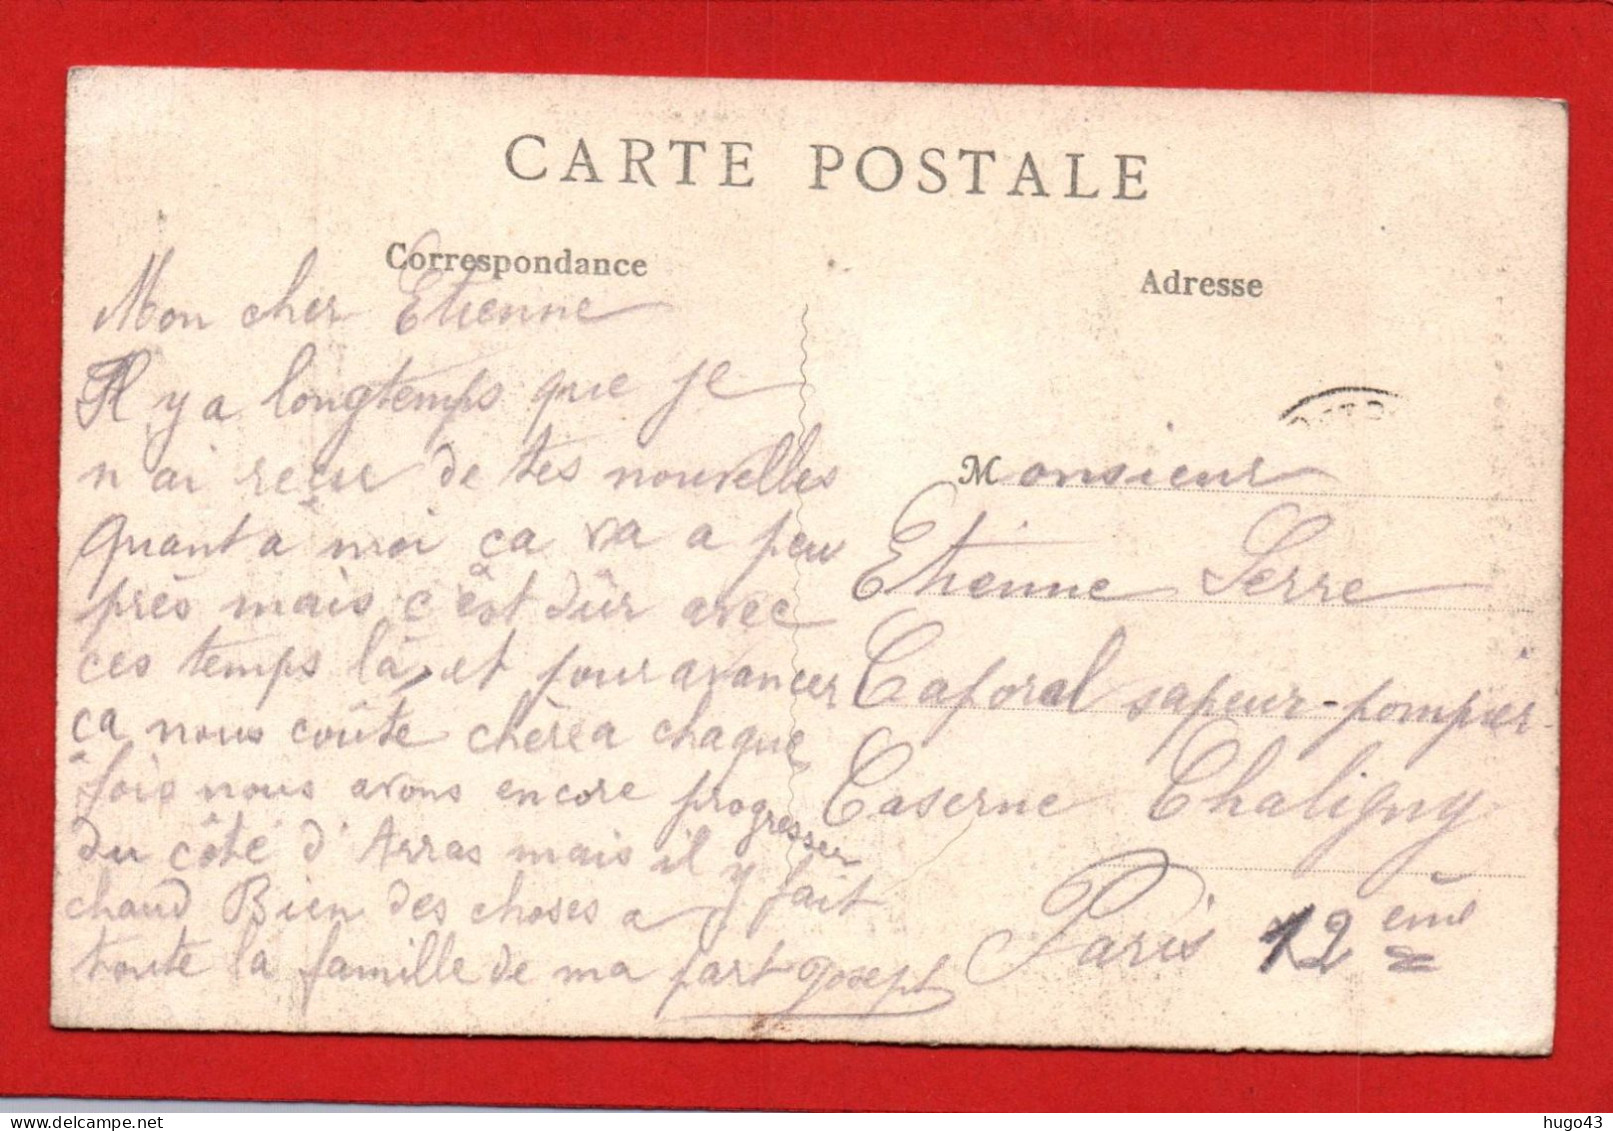 CARTE POSTALE
Correspondance
Mon cher Etienne
Il y a longtemps que je
n'ai reçue de tes nouvelles
Quant à moi ça va a peu
près mais c'est dûr avec
ces temps là, et pour avancer
ça nous coûte chère a chaque
fois nous avons encore progresser
du côté d'Arras mais il y fait
chaud Bien des choses a
toute la famille de ma part Joseph
Adresse
Monsieur
Etienne Serre
Caporal sapeur-pompier
Caserne Chaligny
Paris 12 eme
hugo43